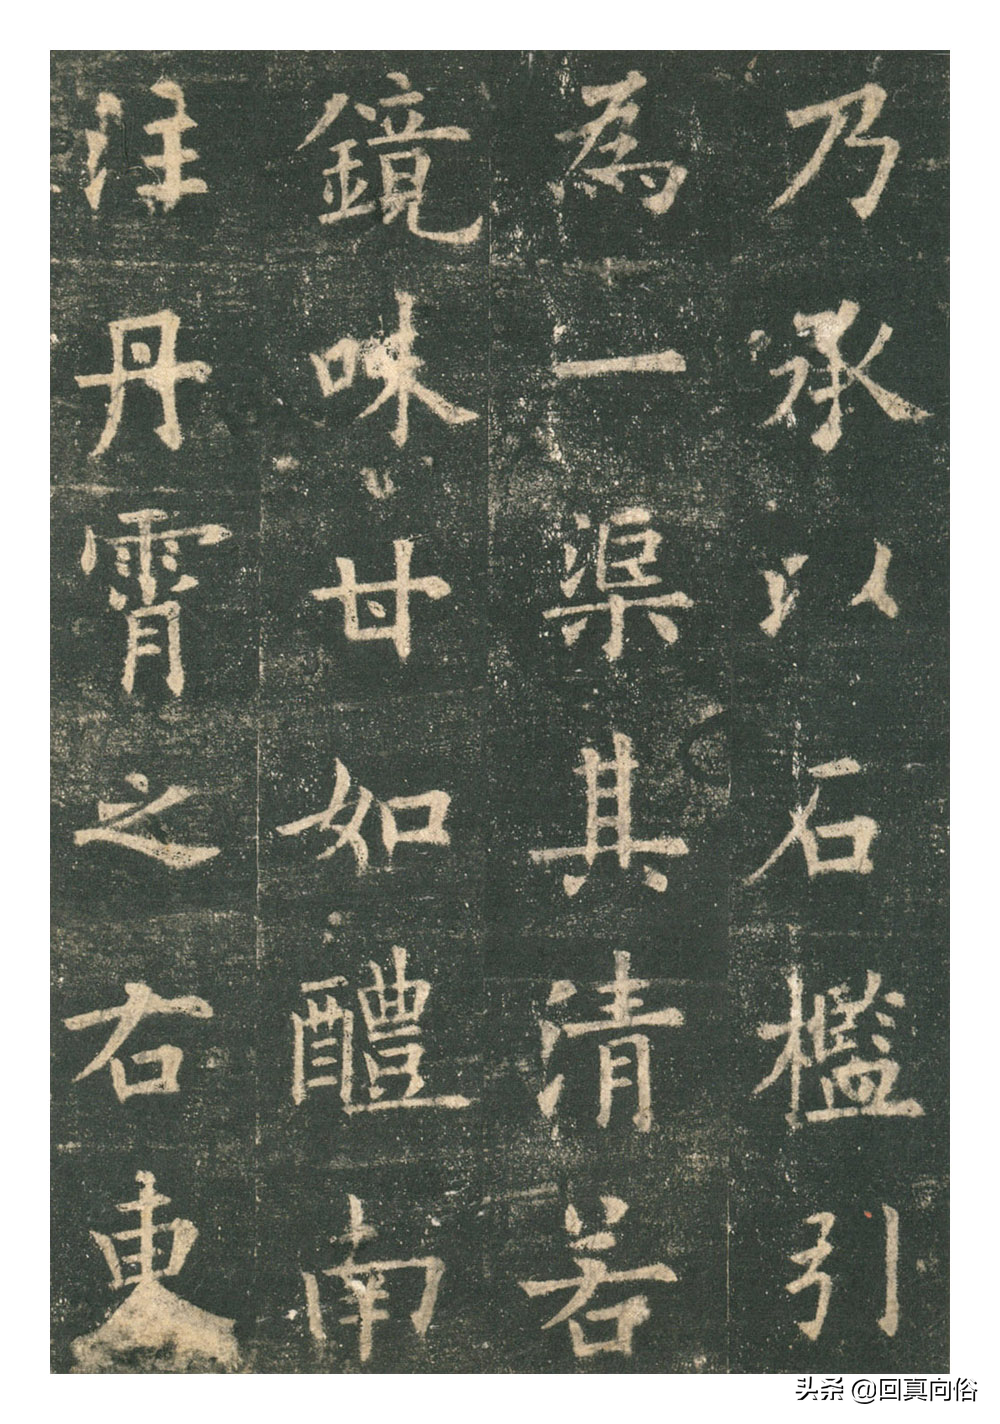 乃承以石檻引
為一渠其清若
鏡味甘如醴南
注丹霄之右東
头条 @回真向俗